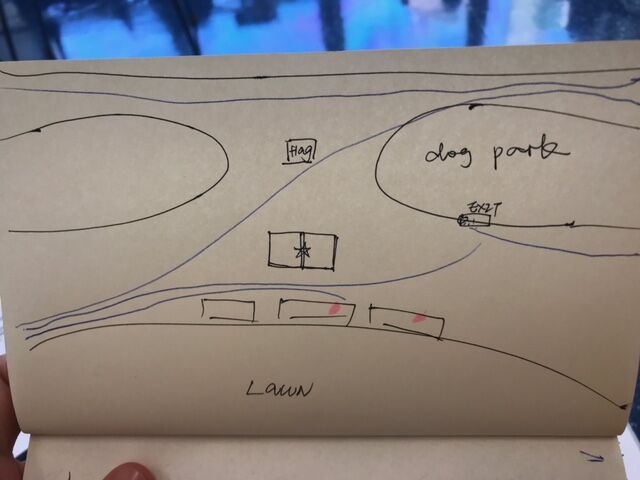 flag
dog park
EXIT
LAWN